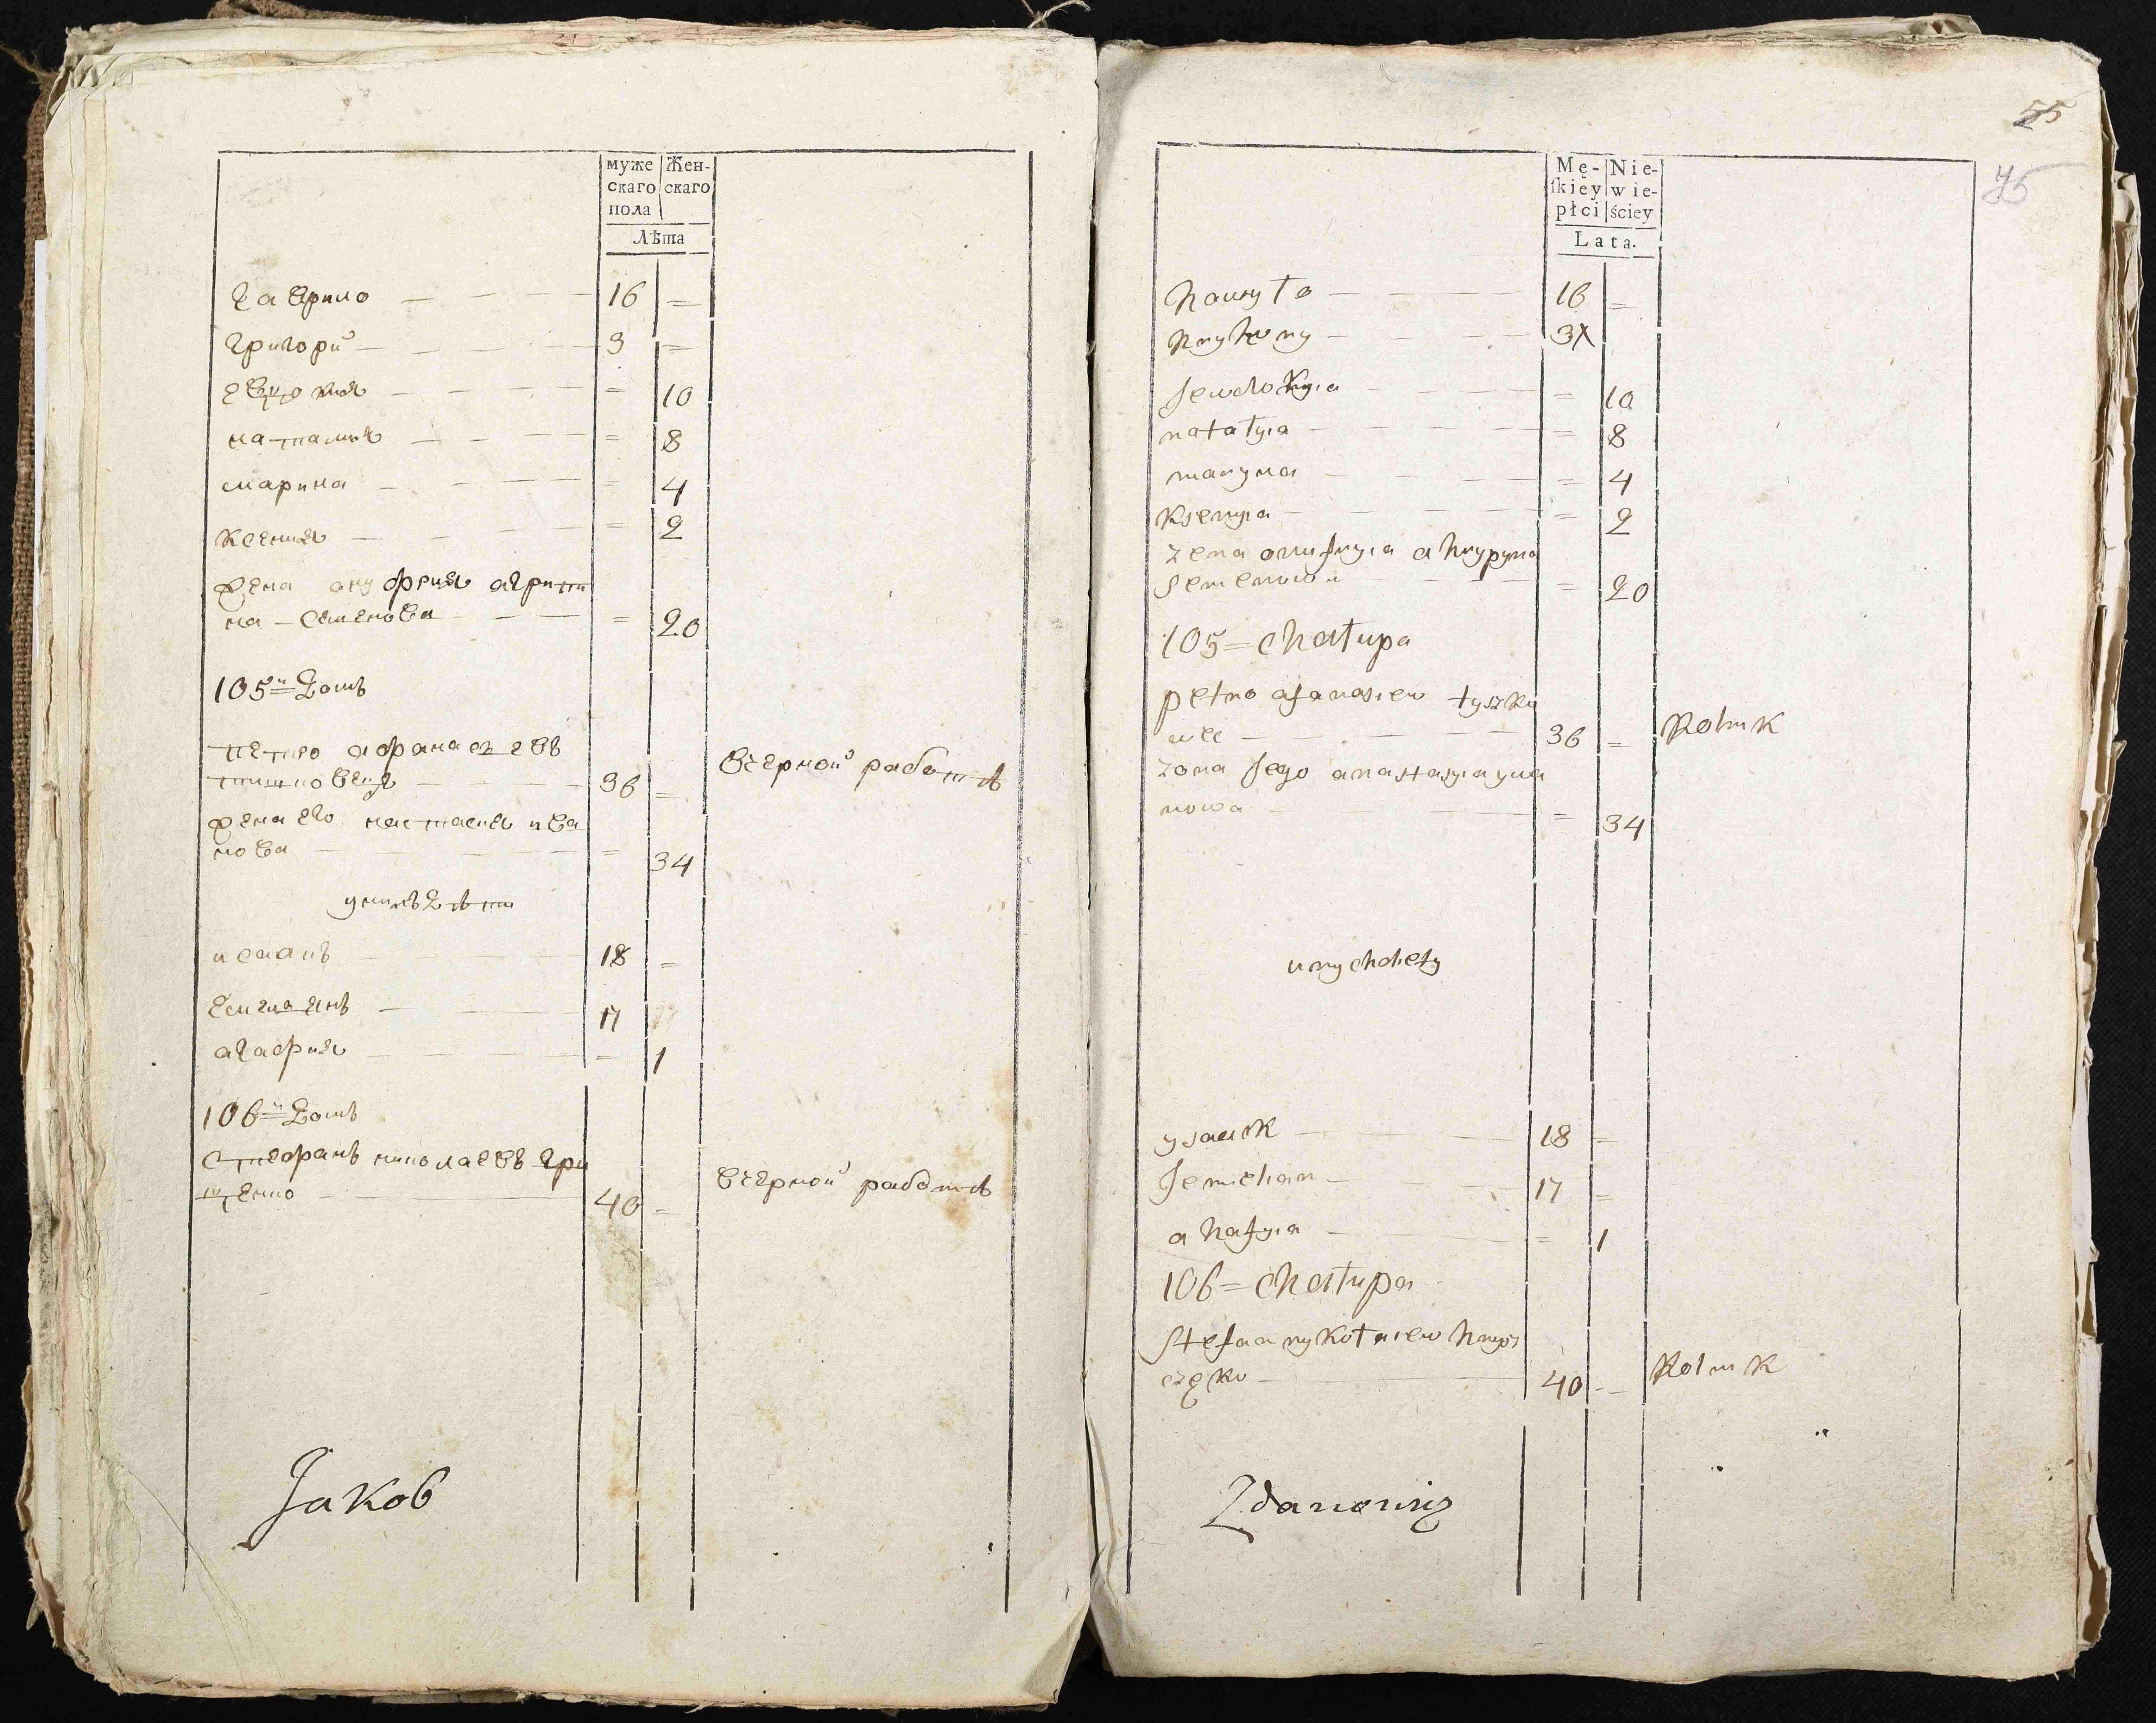 муже Жен-
скаго скаго
пола
Лѣта
Гаврило — — — 16 =
Григори — — — 3 =
Евдокия — — — = 10
наталия — — — = 8
марина — — — = 4
Ксения — — — = 2
жена ануфрия агрипи
на Семенова — — = 20
105й= домъ
петро афанасиевъ
тишковецъ — — 36 = вчерной работѣ
жена его настасия ива
нова — — — = 34
унихъ дѣти
исаакъ — — 18 =
Емилиянъ — — 17
агафия — — = 1
106й= домъ
Стефанъ николаевъ гри
щенко — — 40 = вчерной работѣ
Jakob
55
75
Mę- Nie-
ſkiey wie-
płci ściey
Lata.
hawryło — — — 16 =
hryhory — — — 3
Jewdokyia — — — = 10
natałyia — — — = 8
maryna — — — = 4
Ksenyia — — — = 2
zena onufryia ahrypyna
Semenowa — — = 20
105= chałupa
petro afanasiew tyszko
wec — — — 36 = Rolnik
zona Jego anastasyia ywa
nowa — — — = 34
unychdiety
ysaak — — — 18 =
Jemielian — — 17 =
ahafyia — — — = 1
106= chałupa
Stefan nykołaiew hrysz
częko — — — 40 — Rolnik
Zdanowicz